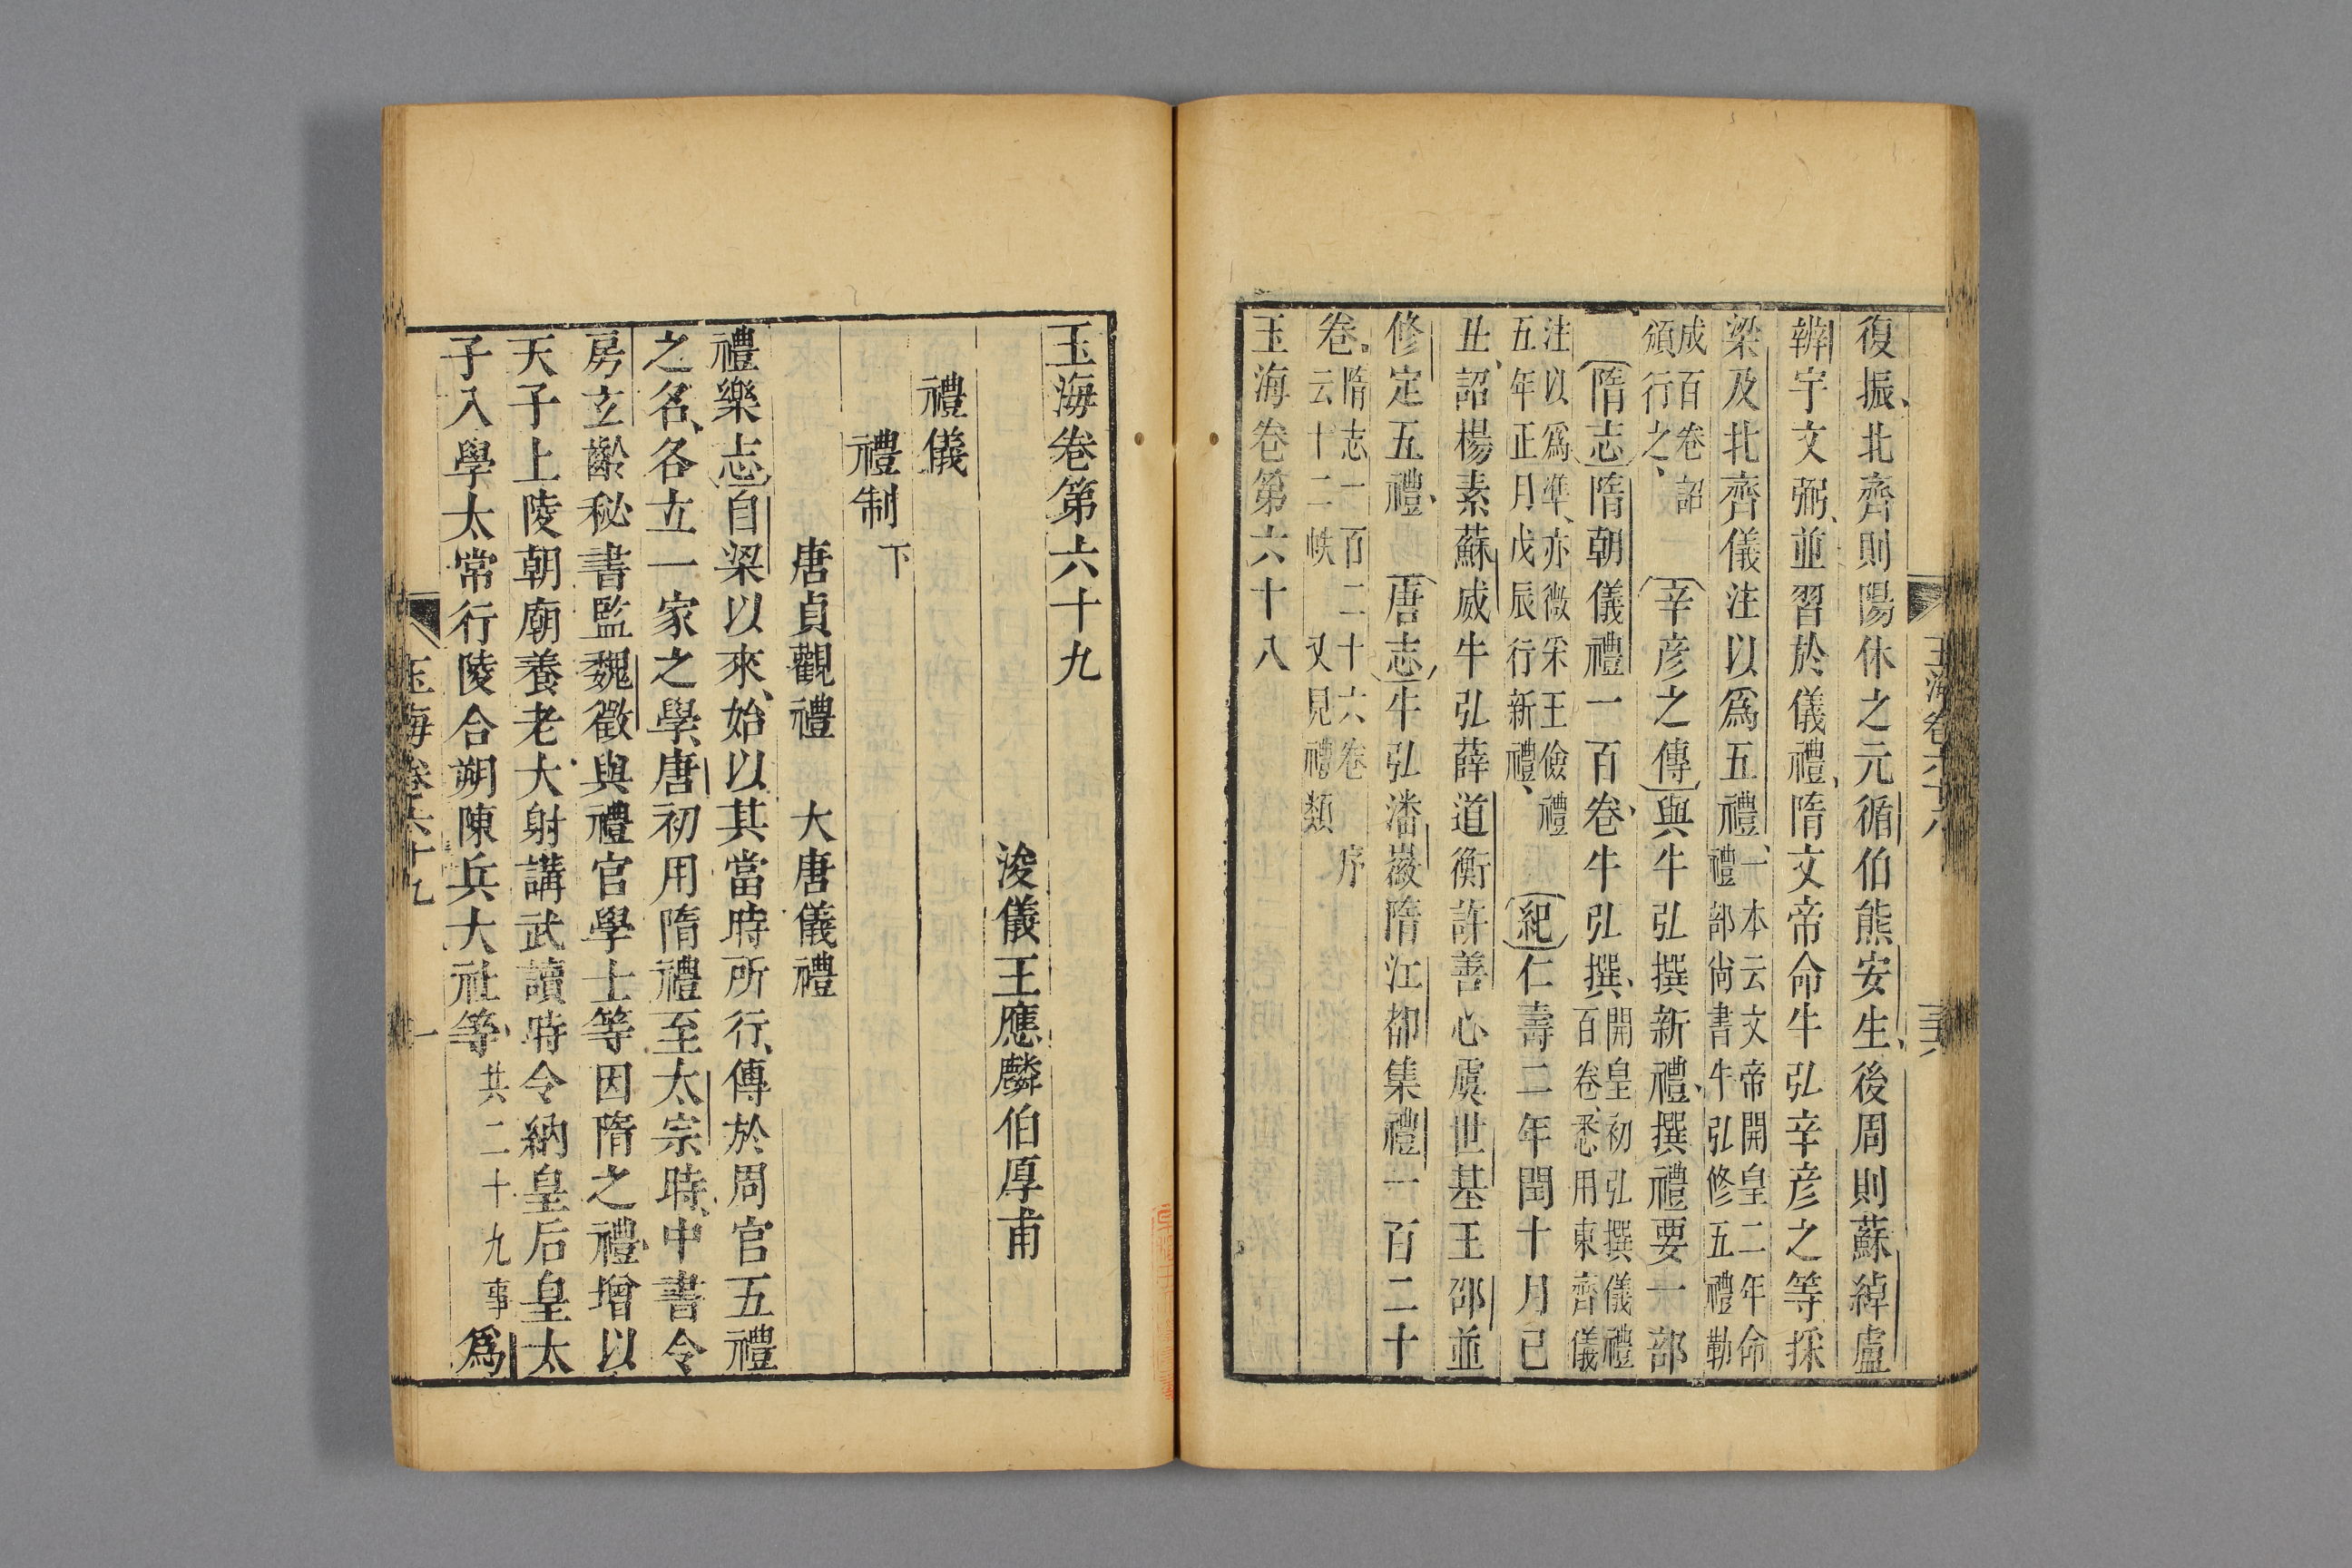 復振北齊則陽休之元循伯熊安生後周則蘇綽盧
辯宇文弼並習於儀禮隋文帝命牛弘辛彥之等採
梁及北齊儀注以爲五禮一本云文帝開皇二年命禮部尙書牛弘修五禮勒
成百卷詔頒行之辛彥之傳與牛弘撰新禮撰禮要一部
隋志隋朝儀禮一百卷牛弘撰開皇初弘撰儀禮百卷悉用東齊儀
注以爲準亦微采王儉禮紀仁壽二年閏十月己
五年正月戊辰行新禮
丑詔楊素蘇威牛弘薛道衡許善心虞世基王邵並
修定五禮唐志牛弘潘徽隋江都集禮一百二十
卷隋志一百二十六卷序云十二帙又見禮類
玉海卷第六十八
玉海卷六十八
玉海卷第六十九
浚儀王應麟伯厚甫
禮儀
禮制下
唐貞觀禮 大唐儀禮
禮樂志自梁以來始以其當時所行傳於周官五禮
之名各立一家之學唐初用隋禮至太宗時中書令
房玄齡秘書監魏徵與禮官學士等因隋之禮增以
天子上陵朝廟養老大射講武讀時令納皇后皇太
子入學太常行陵合朔陳兵大社等共二十九事爲
玉海卷六十九 一